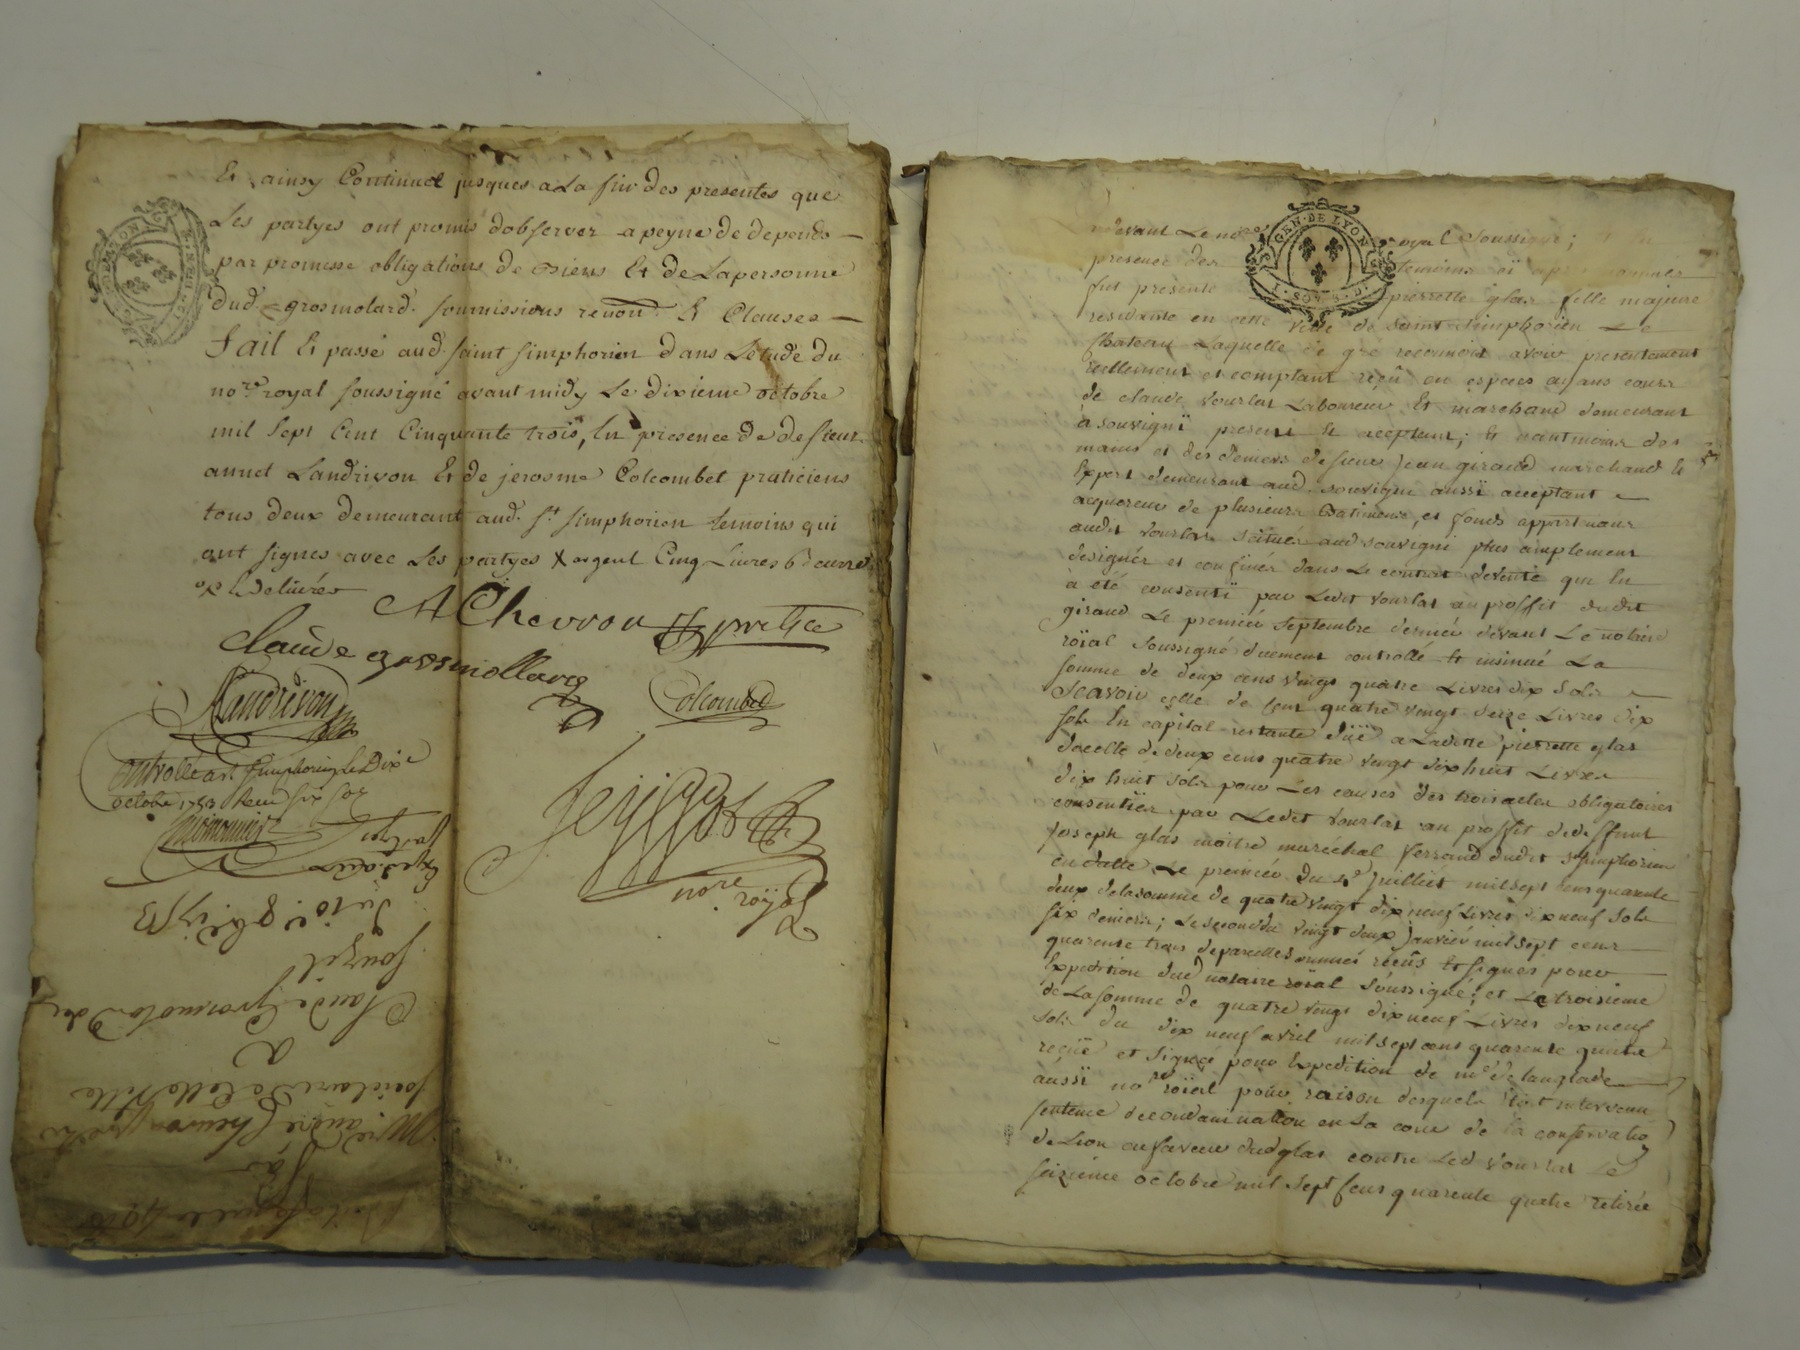 Et ainsy Continué jusques a La fin des presentes que
Les partyes ont promis dobserver a peyne de depends
par promesse obligations de biens Et de Lapersonne
dud. grosmolard. soumissions renon. & Clauses
Fait Et passé aud. saint simphorien dans Letude du
no.re royal soussigné avant midy Le dixieme octobre
mil sept Cent Cinquante trois, En presence de de sieur
annet Landrivon Et de jerosme Colcombet praticiens
tous deux demeurant aud. s.t simphorien temoins qui
ont signes avec Les partyes argent Cinq Livres 6 d
Chevron
claude grosmollard
Landrivon
Colcombet
Controllé a s.t simphorien Le Dix e
octobre 1753 Reçu six sols
no.re royal
Du 10.e 8bre 1753
Claude Grosmolard
a
societaire de cette ville
M.re andré Chevron
par
GEN·DE LYON
pardevant Le no.re royal Soussigné;
presence des temoins
fut presente pierrette glas fille majeure
residante en cette ville de saint simphorien Le
Chateau Laquelle de gré reconnoit avoir presentement
reellement et comptant reçû en especes
de claude vourlat Laboureur Et marchand demeurant
à souvigni present Et acceptant; Et neantmoins des
mains et des deniers de sieur jean giraud marchand Et
Expert demeurant aud. souvigni aussi acceptant
acquereur de plusieurs Batiments, et fonds appartenans
audit vourlat scitués aud souvigni plus amplement
designés et confinés dans Le contrat de vente qui lui
à été consenti par Ledit vourlat au proffit dudit
giraud Le premier septembre dernier devant Le notaire
roïal soussigné duement controllé Et insinué La
somme de deux cens vingt quatre Livres dix sols
Scavoir celle de Cent quatre vingt seize Livres dix
sols En capital restante düe a Ladite pierrette glas
de celle de deux cens quatre vingt dix huit Livres
dix huit sols pour Les causes des trois actes obligatoires
consenties par Ledit vourlat au proffit de deffunt
joseph glas moitre marechal ferrand dudit s.t simphorien
en datte Le premier du juillet mil sept cens quarente
deux de la somme de quatre vingt dix neuf Livres dix neuf sols
six deniers; Le second du vingt deux janvier mil sept cens
quarente trois de pareille somme reçûs Et signés pour
Expedition dud notaire roïal soussigné; et Le troisieme
de La somme de quatre vingt dix neuf Livres dix neuf
sols du dix neuf avril mil sept cens quarente quatre
reçüe et signé pour Expedition de m.e de langlade
aussi no.re roïal pour raison desquels seroit intervenu
sentence de condamnation en La cour de la conservatio
de Lion en faveur dud glas contre Led vourlat Le
seizieme octobre mil sept Cens quarente quatre retirée